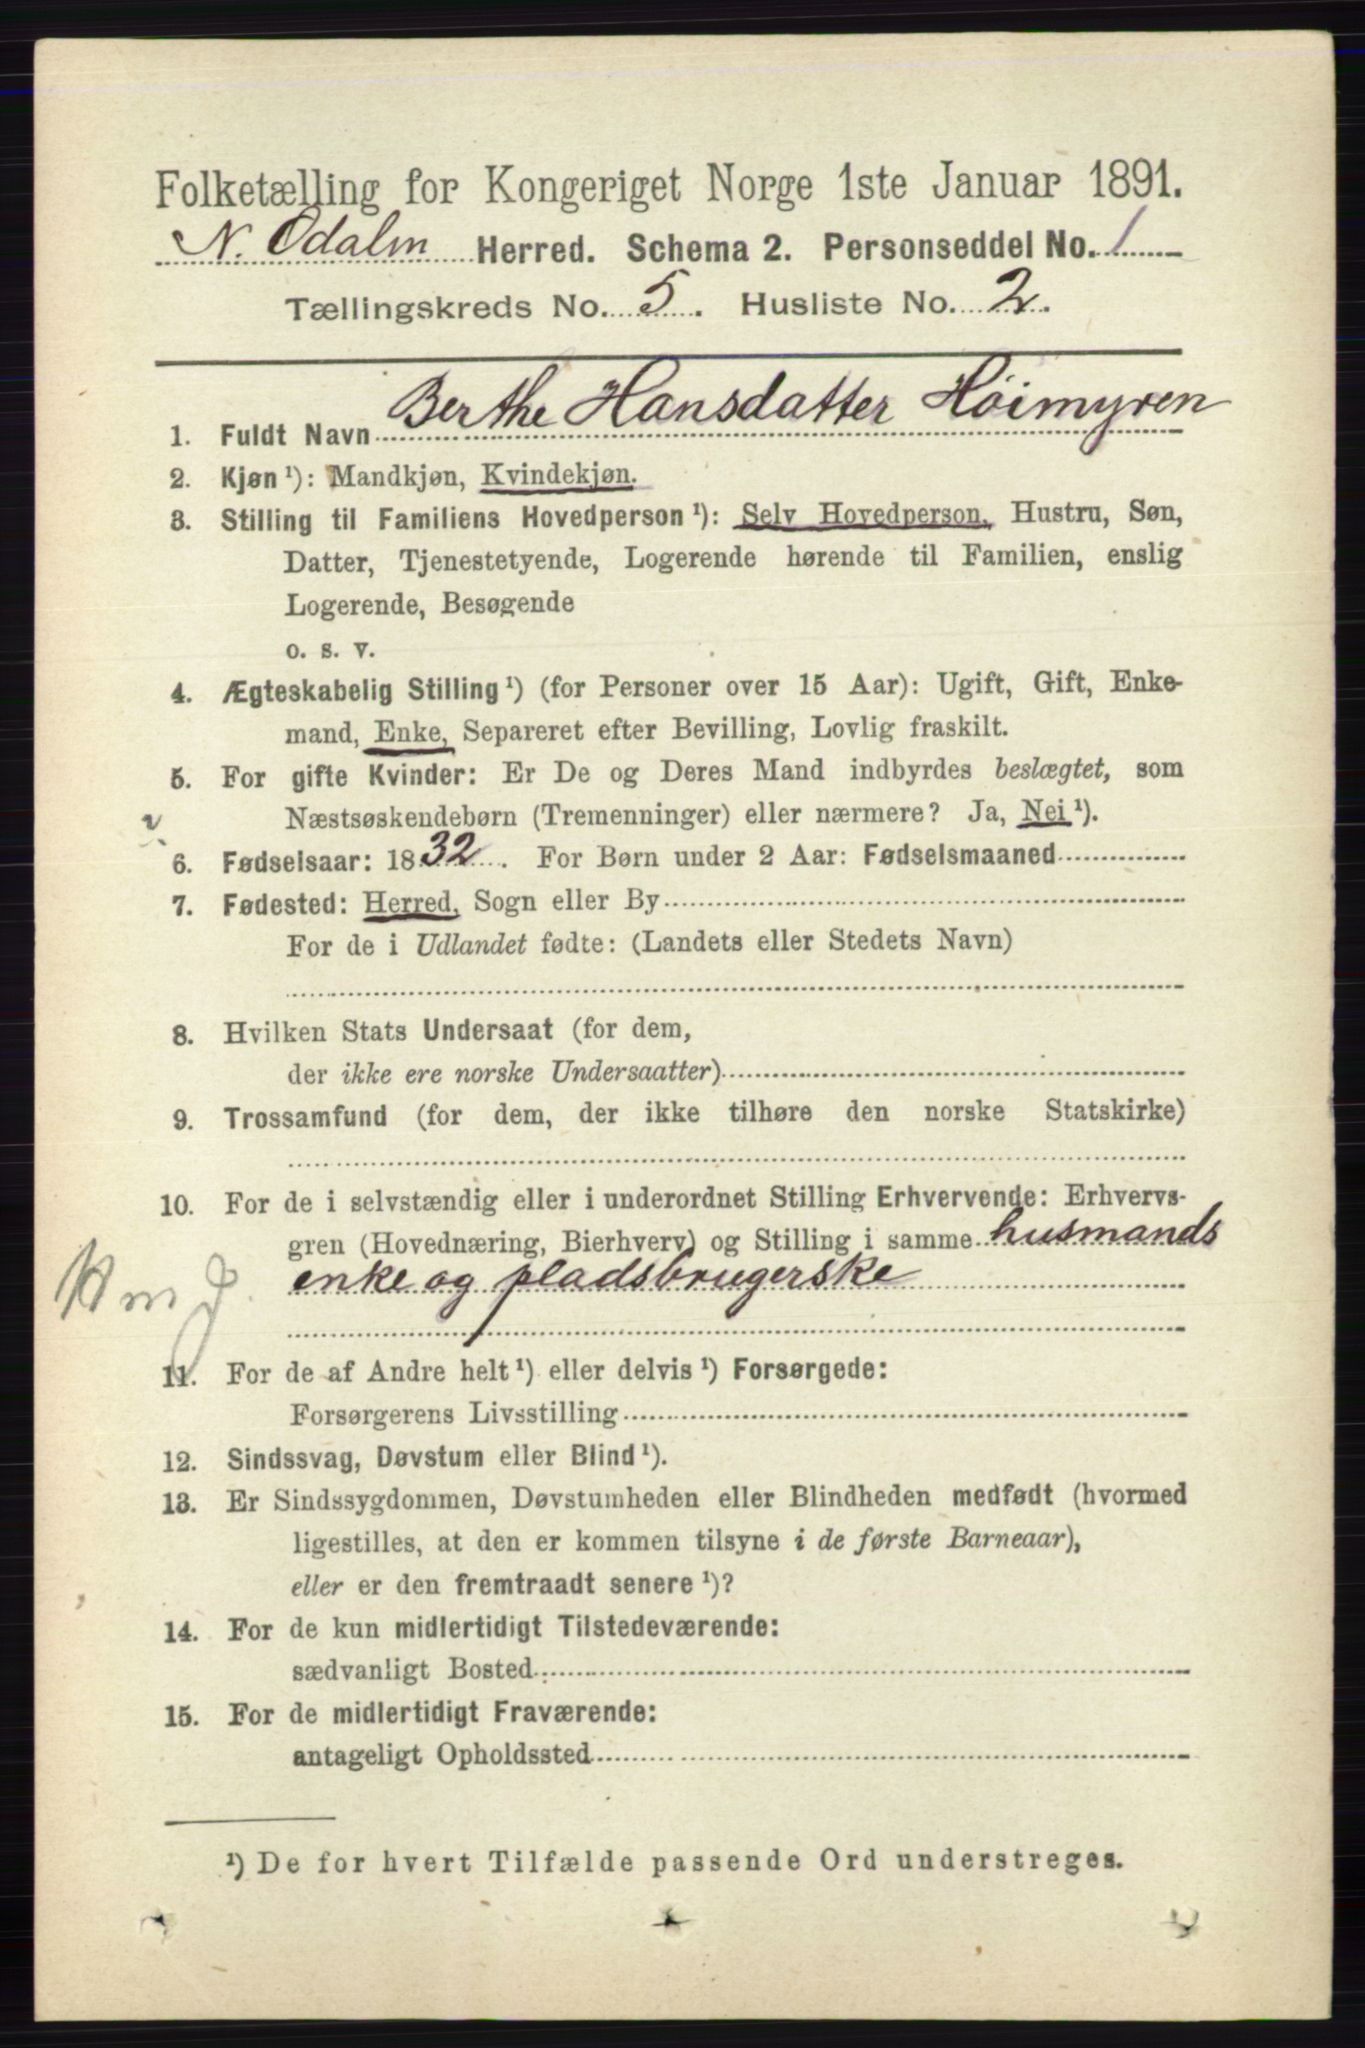 Folketælling for Kongeriget Norge 1ste Januar 1891.
N. Odalen Herred. Schema 2. Personseddel No. 1
Tællingskreds No. 5. Husliste No. 2.
1. Fuldt Navn Berthe Hansdatter Höimyren
2. Kjøn¹): Mandkjøn, Kvindekjøn.
3. Stilling til Familiens Hovedperson¹): Selv Hovedperson, Hustru, Søn,
Datter, Tjenestetyende, Logerende hørende til Familien, enslig
Logerende, Besøgende
o. s. v.
4. Ægteskabelig Stilling¹) (for Personer over 15 Aar): Ugift, Gift, Enke-
mand, Enke, Separeret efter Bevilling, Lovlig fraskilt.
5. For gifte Kvinder: Er De og Deres Mand indbyrdes beslægtet, som
Næstsøskendebørn (Tremenninger) eller nærmere? Ja, Nei¹).
6. Fødselsaar: 1832. For Børn under 2 Aar: Fødselsmaaned
7. Fødested: Herred, Sogn eller By
For de i Udlandet fødte: (Landets eller Stedets Navn)
8. Hvilken Stats Undersaat (for dem,
der ikke ere norske Undersaatter)
9. Trossamfund (for dem, der ikke tilhøre den norske Statskirke)
10. For de i selvstændig eller i underordnet Stilling Erhvervende: Erhvervs-
gren (Hovednæring, Bierhverv) og Stilling i samme husmands
enke og pladsbrugerske
11. For de af Andre helt¹) eller delvis¹) Forsørgede:
Forsørgerens Livsstilling
12. Sindssvag, Døvstum eller Blind¹).
13. Er Sindssygdommen, Døvstumheden eller Blindheden medfødt (hvormed
ligestilles, at den er kommen tilsyne i de første Barneaar),
eller er den fremtraadt senere¹)?
14. For de kun midlertidigt Tilstedeværende:
sædvanligt Bosted
15. For de midlertidigt Fraværende:
antageligt Opholdssted
¹) De for hvert Tilfælde passende Ord understreges.